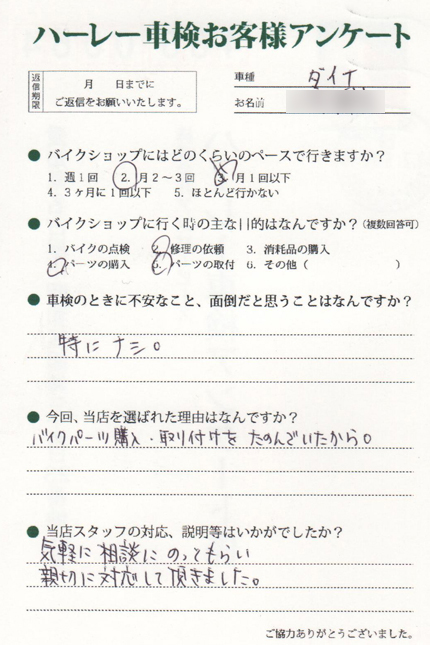 ハーレー車検お客様アンケート
返信期限
月 日までに
ご返信をお願いいたします。
車種 ダイナ
お名前
● バイクショップにはどのくらいのペースで行きますか？
1. 週1回 2. 月2～3回 3. 月1回以下
4. 3ヶ月に1回以下 5. ほとんど行かない
● バイクショップに行く時の主な目的はなんですか？(複数回答可)
1. バイクの点検 2. 修理の依頼 3. 消耗品の購入
4. パーツの購入 5. パーツの取付 6. その他（ ）
● 車検のときに不安なこと、面倒だと思うことはなんですか？
特にナシ。
● 今回、当店を選ばれた理由はなんですか？
バイクパーツ購入・取り付けをたのんでいたから。
● 当店スタッフの対応、説明等はいかがでしたか？
気軽に相談にのってもらい
親切に対応して頂きました。
ご協力ありがとうございました。